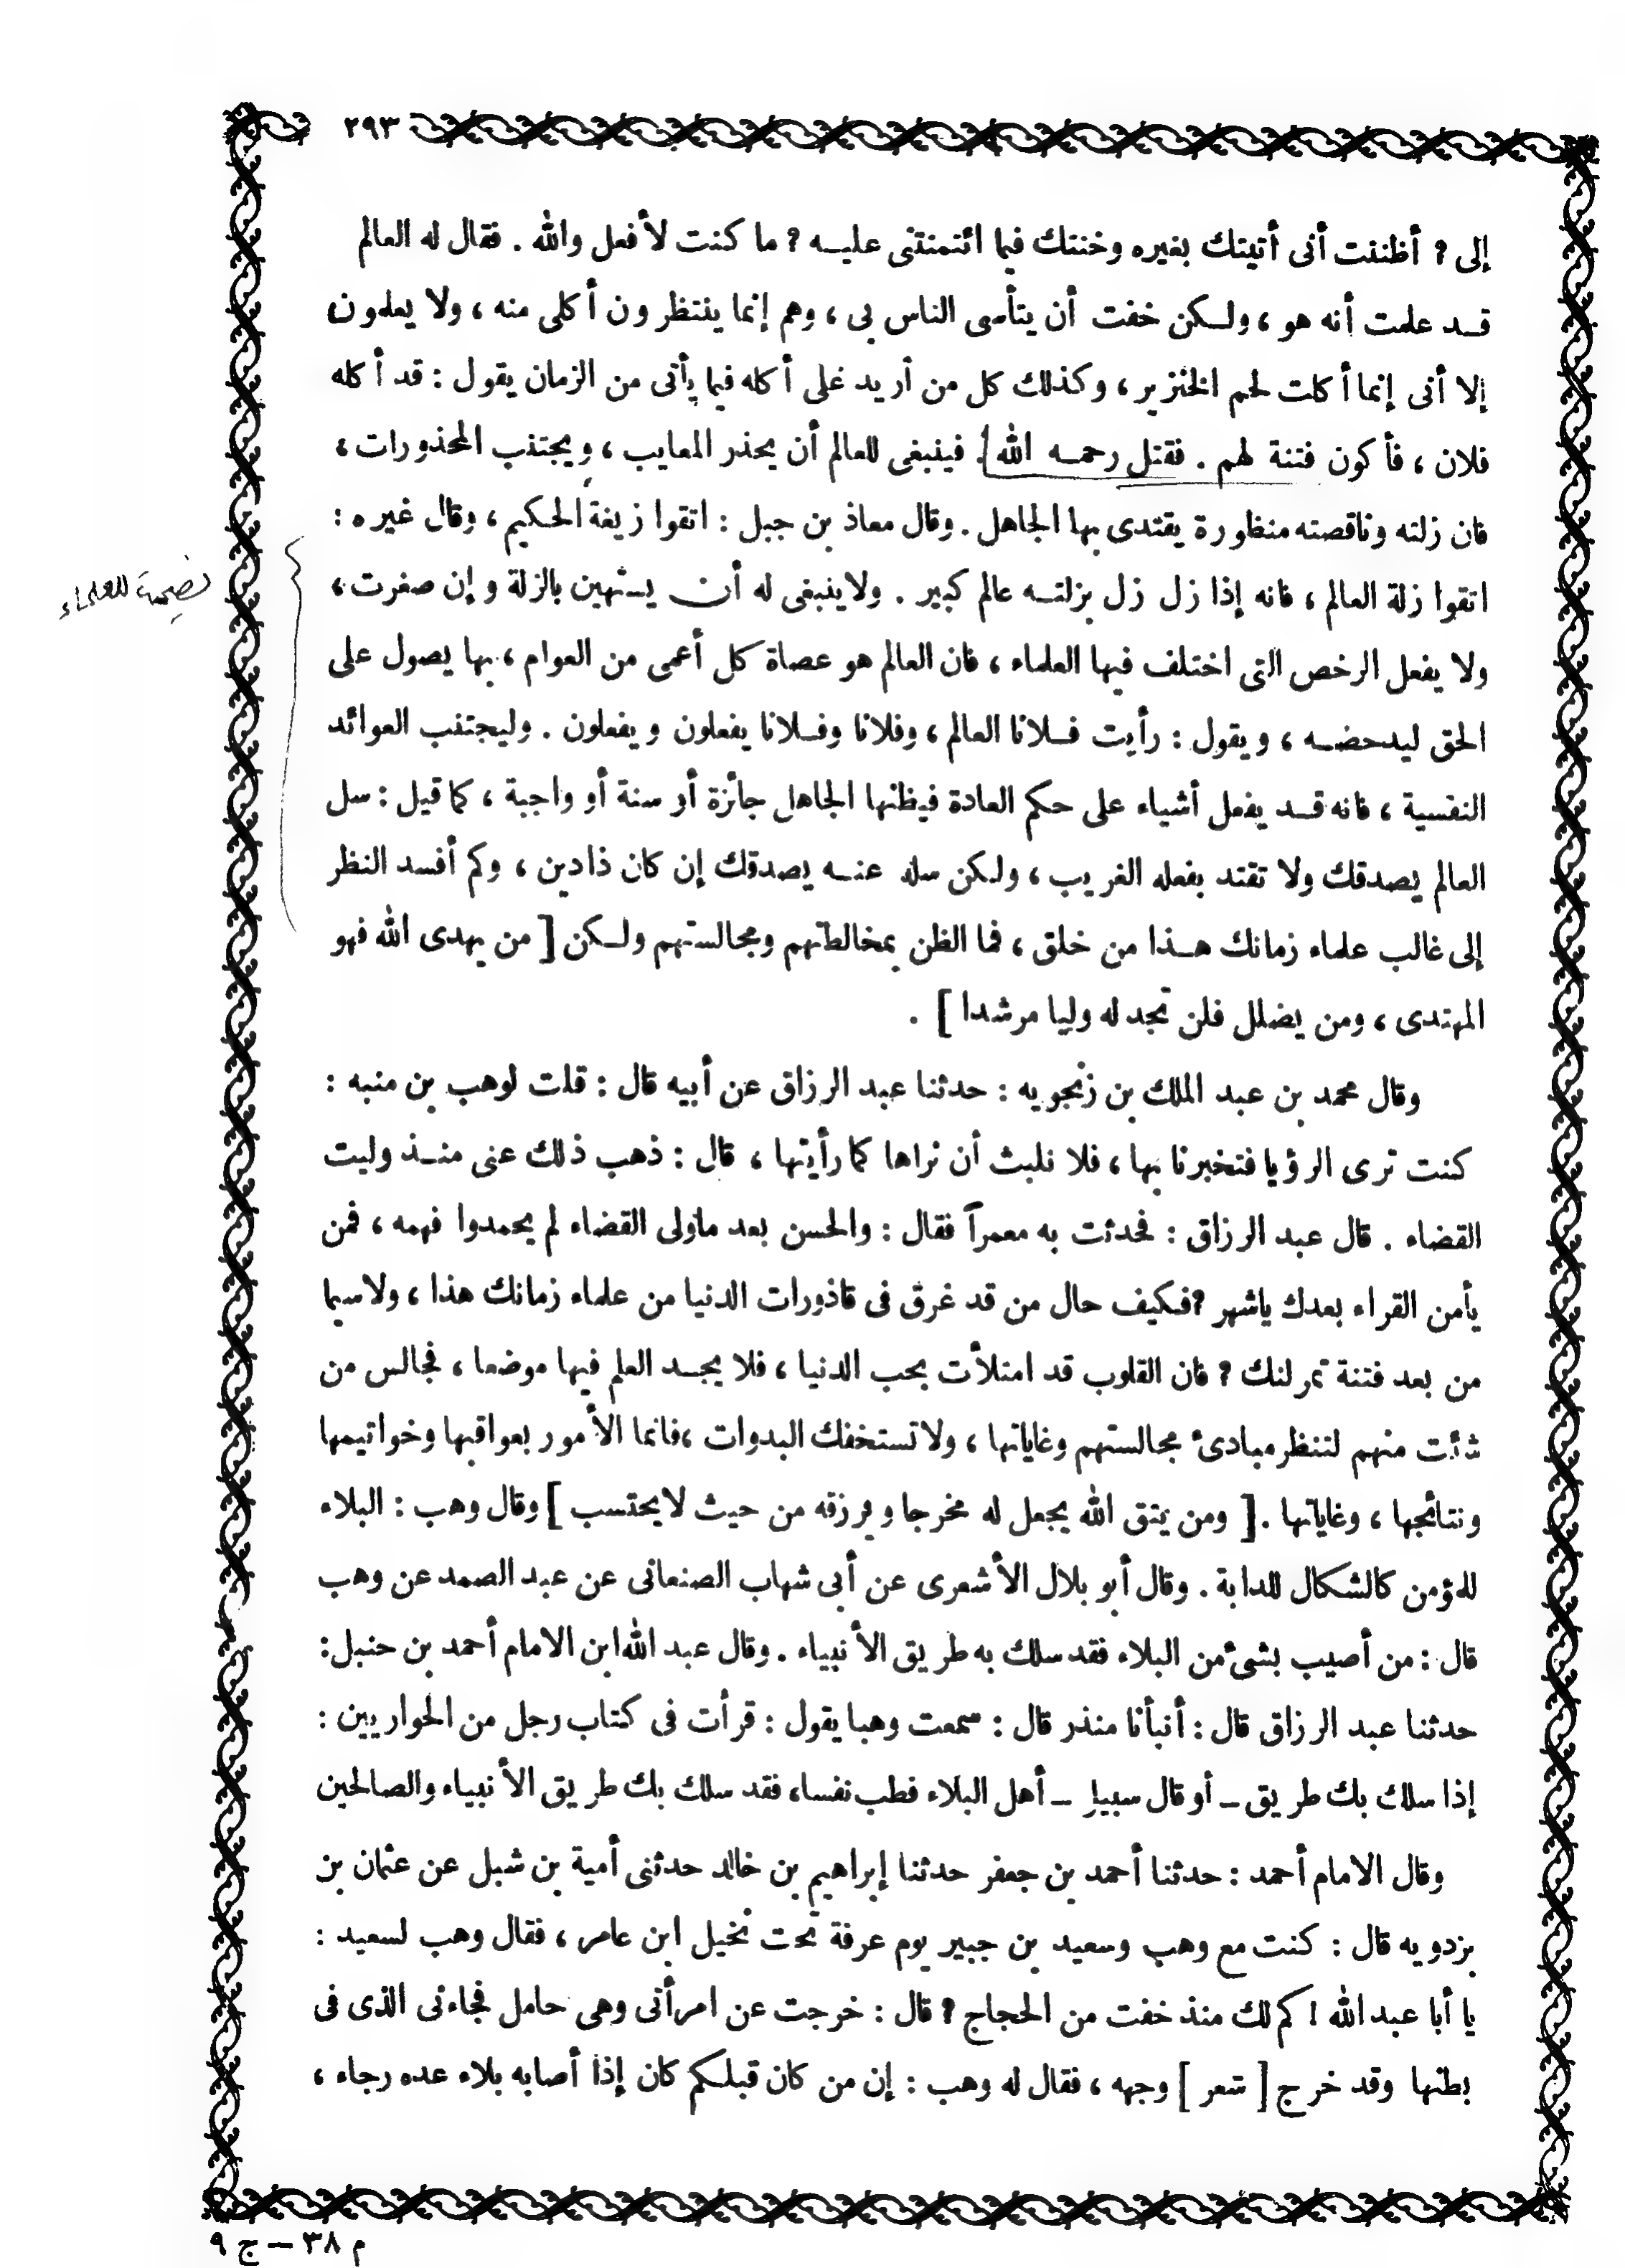 ٢٩٣
إلى ؟ أظننت أنى أتيتك بغيره وخنتك فيما ائتمنتنى عليـه ؟ ما كنت لأفعل والله . فقال له العالم
قـد علمت أنه هو ، ولـكن خفت أن يتأسى الناس بى ، وهم إنما ينتظرون أكلى منه ، ولا يعلمون
إلا أنى إنما أكلت لحم الخنزير ، وكذلك كل من أريد على أكله فيما يأتى من الزمان يقول : قد أكله
فلان ، فأكون فتنة لهم . فقتل رحمـه الله . فينبغى للعالم أن يحذر المعايب ، ويجتنب المحذورات ،
فان زلته وناقصته منظورة يقتدى بها الجاهل . وقال معاذ بن جبل : اتقوا زيغة الحكيم ، وقال غيره :
نصيحة للعلماء
اتقوا زلة العالم ، فانه إذا زل زل بزلتـه عالم كبير . ولاينبغى له أن يستهين بالزلة وإن صغرت ،
ولا يفعل الرخص التى اختلف فيها العلماء ، فان العالم هو عصاة كل أعمى من العوام ، بها يصول على
الحق ليدحضـه ، ويقول : رأيت فـلانا العالم ، وفلانا وفـلانا يفعلون ويفعلون . وليجتنب العوائد
النفسية ، فانه قـد يفعل أشياء على حكم العادة فيظنها الجاهل جائزة أو سنة أو واجبة ، كما قيل : سل
العالم يصدقك ولا تقتد بفعله الغريب ، ولـكن سله عنـه يصدقك إن كان ذا دين ، وكم أفسد النظر
إلى غالب علماء زمانك هـذا من خلق ، فما الظن بمخالطتهم ومجالستهم ولـكن [ من يهدى الله فهو
المهتدى ، ومن يضلل فلن تجد له وليا مرشدا ] .
وقال محمد بن عبد الملك بن زنجويه : حدثنا عبد الرزاق عن أبيه قال : قلت لوهب بن منبه :
كنت ترى الرؤيا فتخبرنا بها ، فلا نلبث أن نراها كما رأيتها ، قال : ذهب ذلك عنى منـذ وليت
القضاء . قال عبد الرزاق : فحدثت به معمراً فقال : والحسن بعد ماولى القضاء لم يحمدوا فهمه ، فمن
يأمن القراء بعدك ياشهر ؟ فـكيف حال من قد غرق فى قاذورات الدنيا من علماء زمانك هذا ، ولاسيما
من بعد فتنة تمرلنك ؟ فان القلوب قد امتلأت بحب الدنيا ، فلا يجـد العلم فيها موضعا ، فجالس من
شئت منهم لتنظر مبادئ مجالستهم وغاياتها ، ولا تستخفك البدوات ، فانما الأمور بعواقبها وخواتيمها
ونتائجها ، وغاياتها . [ ومن يتق الله يجعل له مخرجا ويرزقه من حيث لايحتسب ] وقال وهب : البلاء
للمؤمن كالشكال للدابة . وقال أبو بلال الأشعرى عن أبى شهاب الصنعانى عن عبد الصمد عن وهب
قال : من أصيب بشئ من البلاء فقد سلك به طريق الأنبياء . وقال عبد الله ابن الامام أحمد بن حنبل :
حدثنا عبد الرزاق قال : أنبأنا منذر قال : سمعت وهبا يقول : قرأت فى كتاب رجل من الحواريين :
إذا سلك بك طريق ــ أو قال سبيل ــ أهل البلاء فطب نفسا، فقد سلك بك طريق الأنبياء والصالحين
وقال الامام أحمد : حدثنا أحمد بن جعفر حدثنا إبراهيم بن خالد حدثنى أمية بن شبل عن عثمان بن
بزدويه قال : كنت مع وهب وسعيد بن جبير يوم عرفة تحت نخيل ابن عامر ، فقال وهب لسعيد :
يا أبا عبد الله ! كم لك منذ خفت من الحجاج ؟ قال : خرجت عن امرأتى وهى حامل فجاءنى الذى فى
بطنها وقد خرج [ شعر ] وجهه ، فقال له وهب : إن من كان قبلـكم كان إذا أصابه بلاء عده رجاء ،
م ٣٨ ــ ج ٩